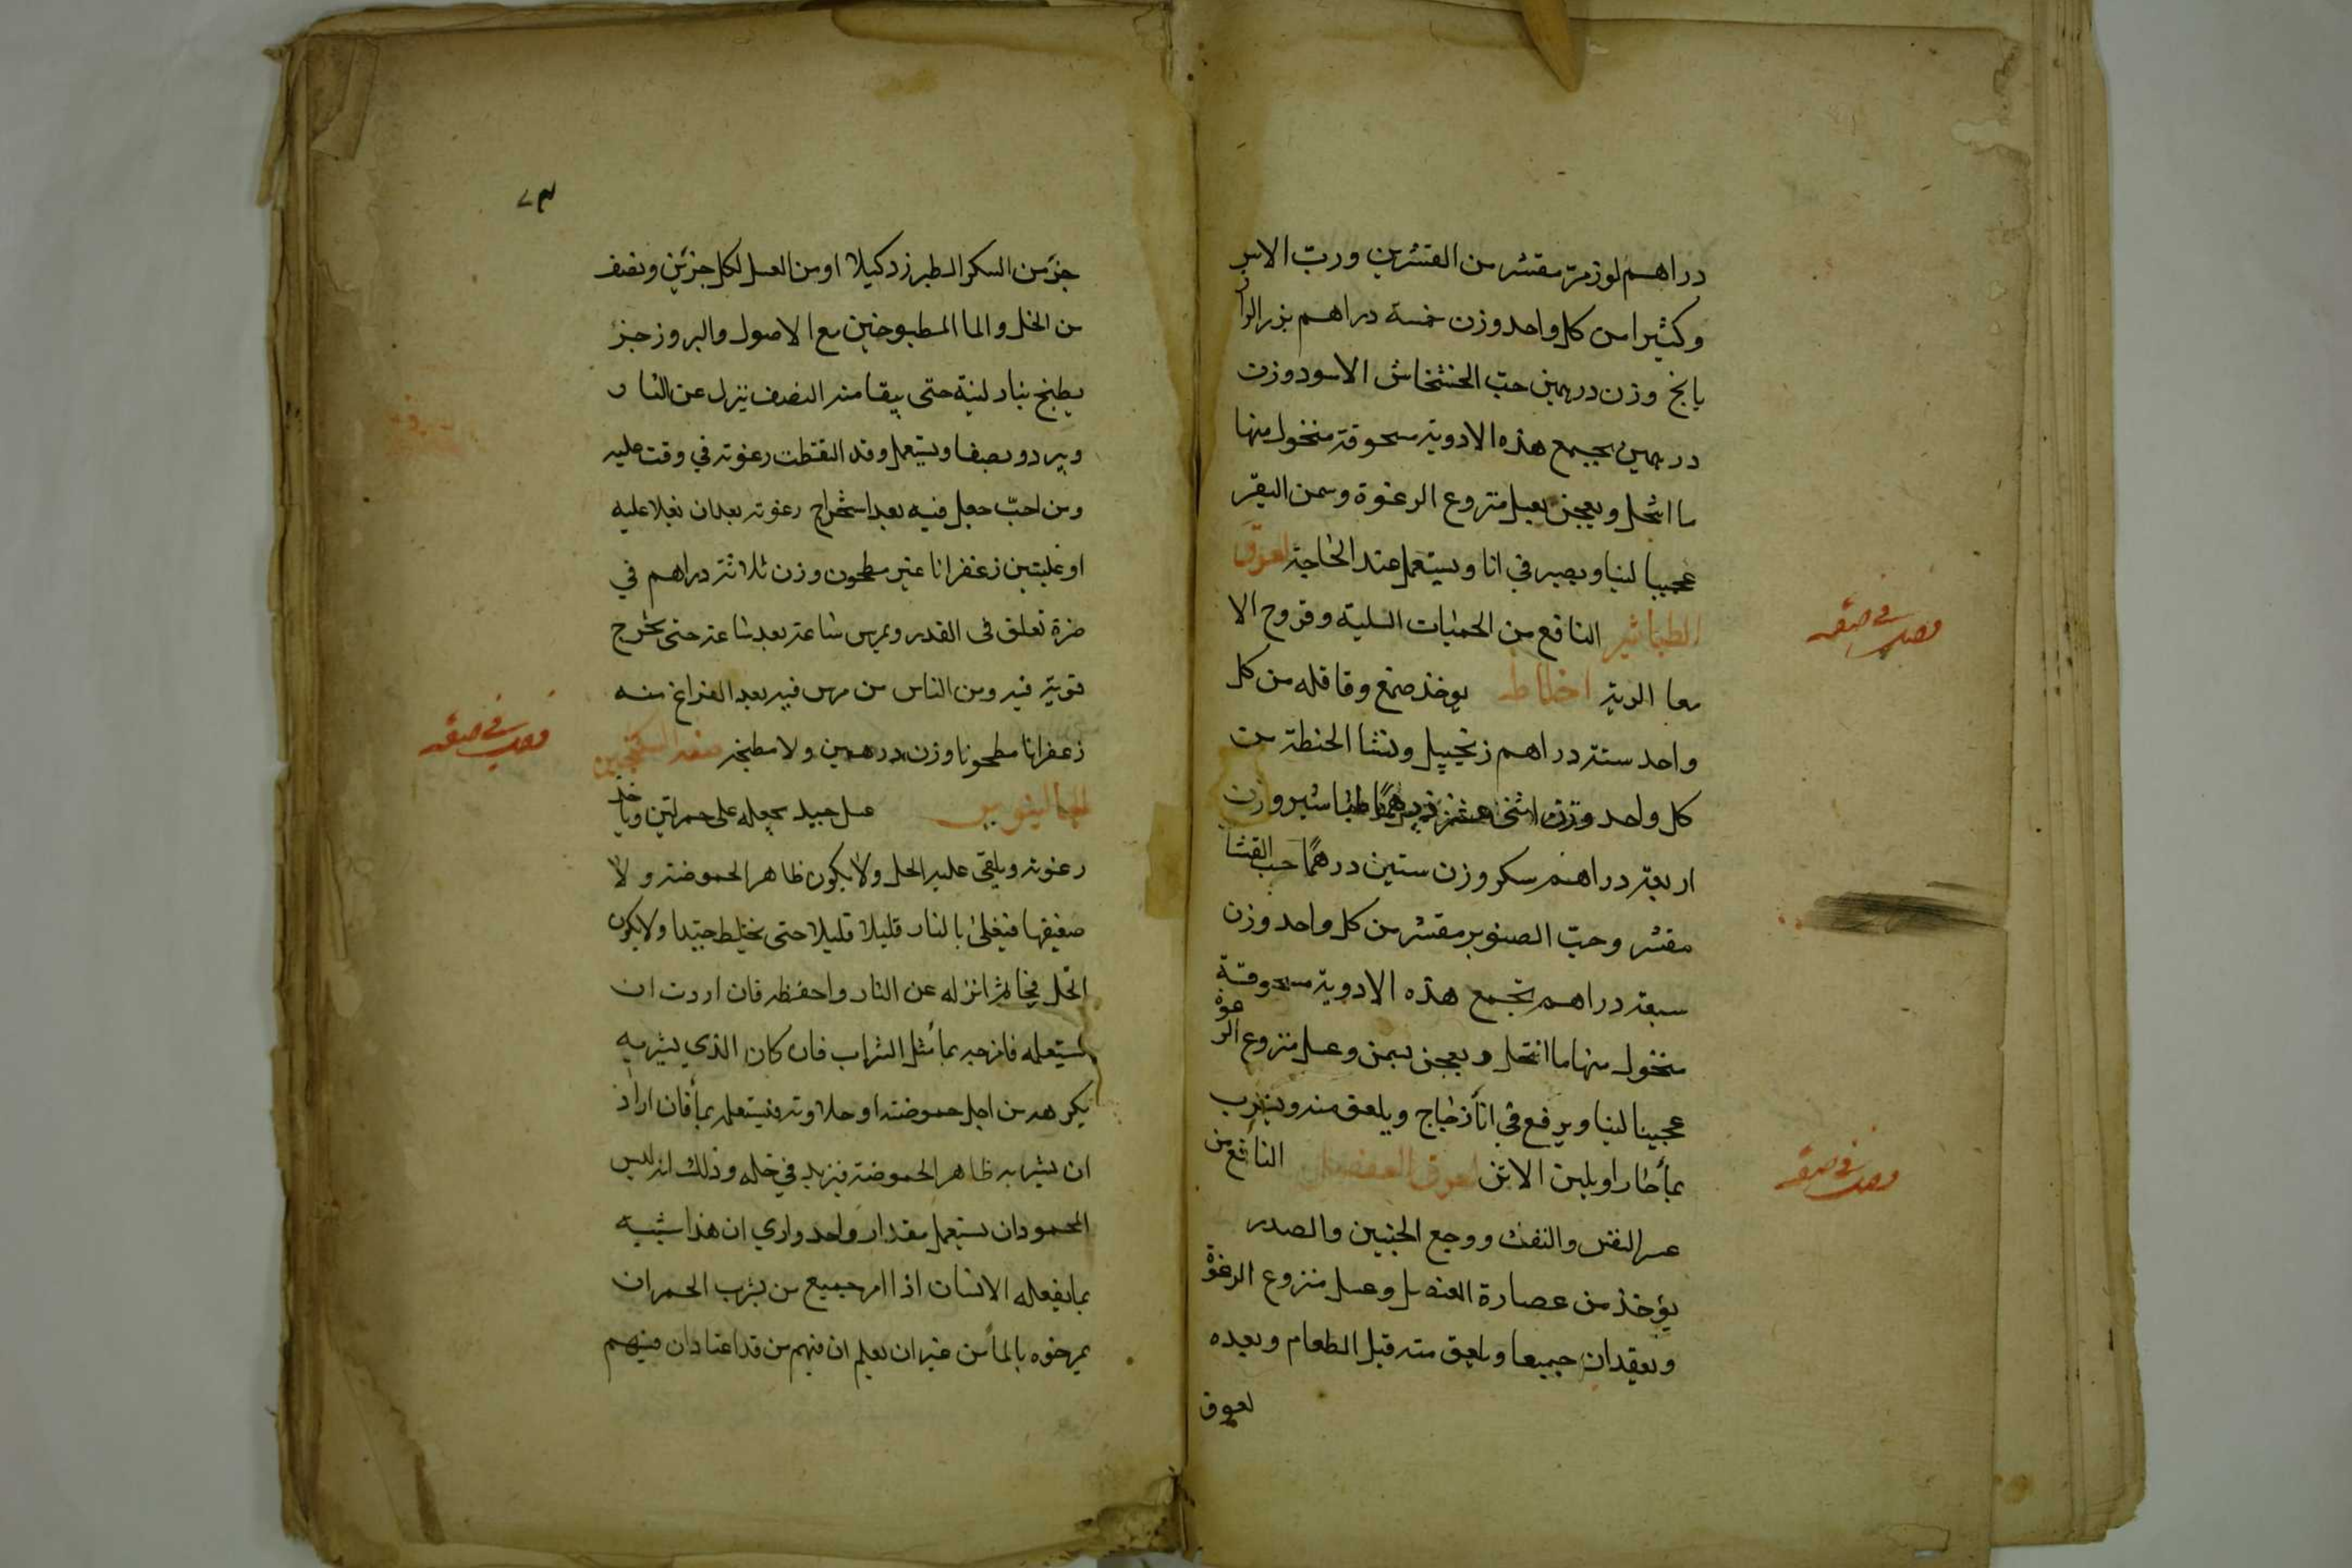 دراهم لوز مرّ مقشر من القشرين وربّ الاس
وكثيرا من كل واحد وزن خمسة دراهم بزر الرا
يانج وزن درهمين حبّ الخشخاش الاسود وزن
درهمين يجمع هذه الادوية مسحوقة منخول منها
ما انخل ويعجن بعسل منزوع الرغوة وسمن البقر
عجينا لينا ويصير في انا ويستعمل عند الحاجة لعوق
الطباشير النافع من الحميات السلية وقروح الا
معا الردية اخلاط يوخذ صمغ وقاقله من كل
واحد ستة دراهم زنجبيل ونشا الحنطة من
كل واحد وزن اثنى عشر درهمًا طباشير وزن
اربعة دراهم سكر وزن ستين درهمًا حب القثا
مقشر وحبّ الصنوبر مقشر من كل واحد وزن
سبعة دراهم تجمع هذه الادوية مسحوقة
منخول منها ما انتخل ويعجن بسمن وعسل منزوع الرغوة
عجينا لينا ويرفع في انآ زجاج ويلعق منه ويشرب
بمآ حار او بلبن الاتن لعوق العنصل النافع من
عسر النفس والنفث ووجع الجنبين والصدر
يؤخذ من عصارة العنصل وعسل منزوع الرغوة
ويعقدان جميعا ويلعق منه قبل الطعام وبعده
لعوق
٧٣
جزء من السكر الطبرزد كيلا او من العسل لكل جزئين ونصف
من الخل والما المطبوخين مع الاصول والبروز جزء
يطبخ بنار لينة حتى يبقا منه النصف ينزل عن النار
ويبرد ويصفا ويستعمل وقد التقطت رغوته في وقت عليه
ومن احبّ جعل فيه بعد استخراج رغوته بعد ان يغلا عليه
او غليتين زعفرانا غير مطحون وزن ثلاثة دراهم في
صرة تعلق في القدر ويمرس ساعة بعد ساعة حتى تخرج
قوية فيه ومن الناس من مرس فيه بعد الفراغ منه
زعفرانا مطحونا وزن درهمين ولا مطبخه صفة السكنجبين
لجالينوس عسل جيد يجعله على جمر لين وياخذ
رغوته ويلقى عليه الخل ولا يكون ظاهر الحموضة ولا
ضعيفها فيغلى بالنار قليلا قليلا حتى يختلط جيّدا ولا يكون
الخل فجا ثم انزله عن النار واحفظه فان اردت ان
تستعمله فامزجه بمآ مثل الشراب فان كان الذي يشربه
يكرهه من اجل حموضته او حلاوته فيستعمله بمآ فان اراد
ان يشربه ظاهر الحموضة فيزيد في خله وذلك انه ليس
المحمود ان يستعمل مقدار واحد وارى ان هذا شبيه
بما يفعله الانسان اذا امر جميع من يشرب الخمر ان
يمرخوه بالمآ من غير ان يعلم ان فيهم من قد اعتاد ان